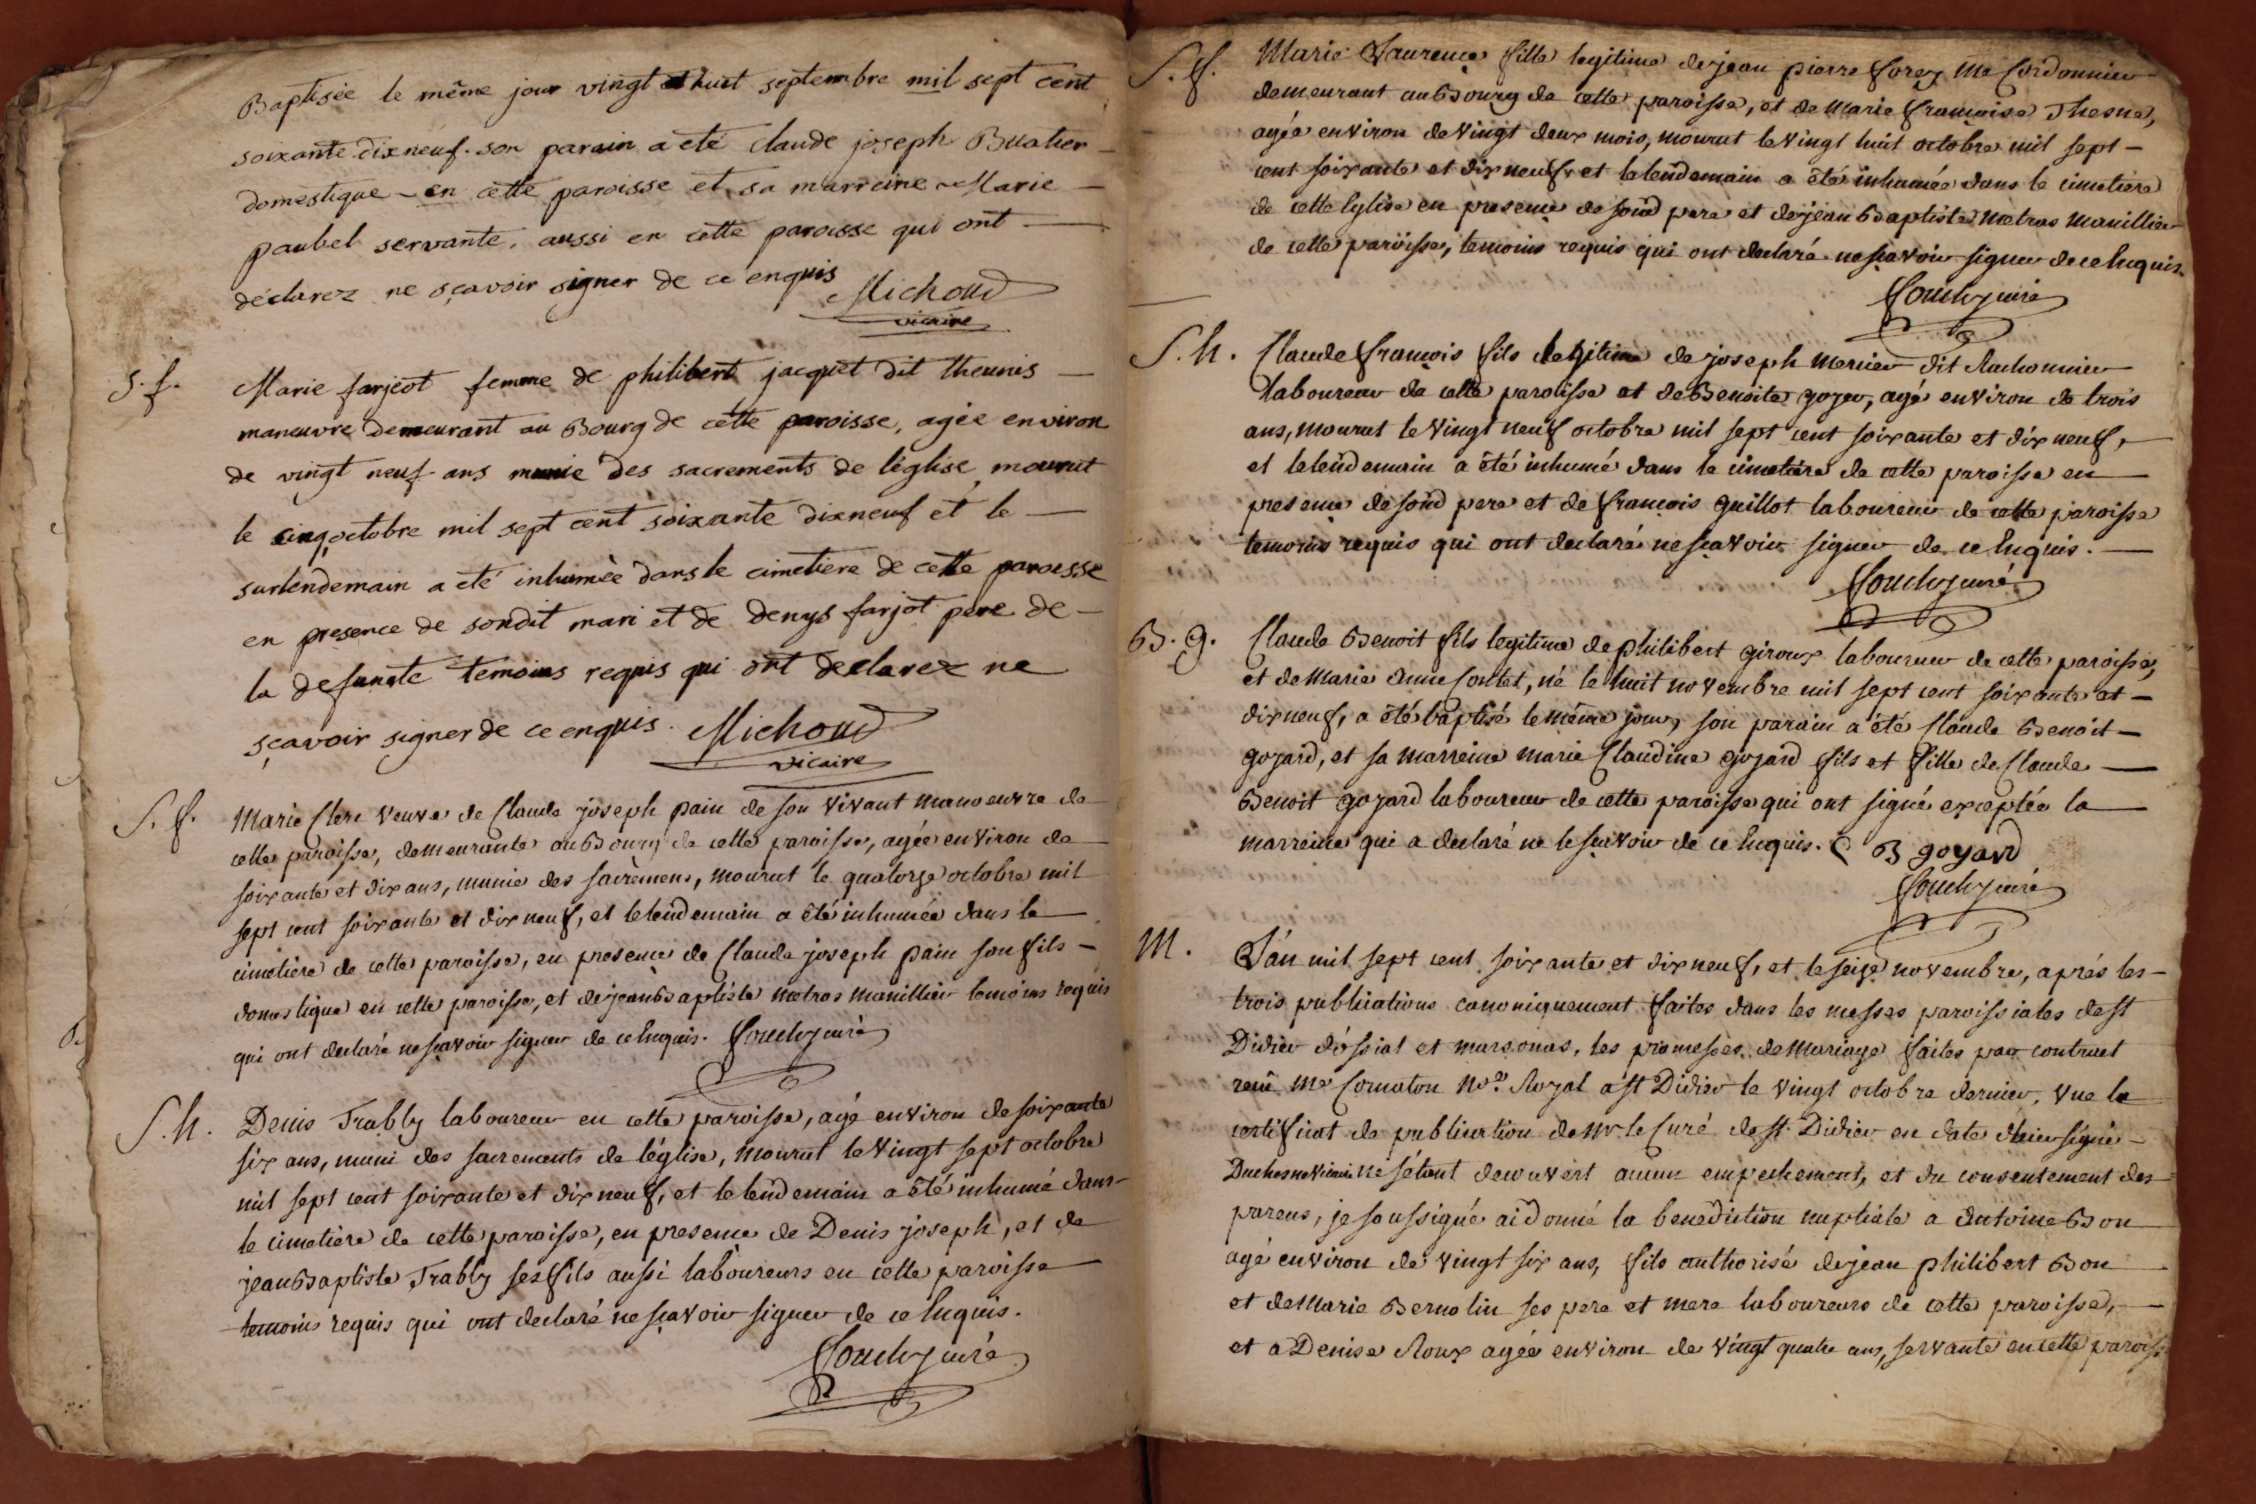 Baptisée le même jour vingt et huit septembre mil sept cent
soixante dixneuf. son parain a eté Claude joseph Buatier
domestique en cette paroisse et sa marreine Marie
paubel servante, aussi en cette paroisse qui ont
déclarez ne sçavoir signer de ce enquis Michoud
vicaire
S. f. Marie farjeot femme de philibert jacquet dit theunis
maneuvre demeurant au Bourg de cette paroisse, agée environ
de vingt neuf ans munie des sacrements de l'église mourut
le cinq octobre mil sept cent soixante dixneuf et le
surlendemain a eté inhumée dans le cimetiere de cette paroisse
en presence de sondit mari et de denys farjot pere de
la defuncte temoins requis qui ont declarez ne
sçavoir signer de ce enquis. Michoud
vicaire
S. f. Marie Clerc veuve de Claude joseph pain de son vivant manoeuvre de
cette paroisse, demeurante au Bourg de cette paroisse, agée environ de
soixante et dix ans, munie des sacremens, mourut le quatorze octobre mil
sept cent soixante et dix neuf, et le lendemain a été inhumée dans le
cimetiere de cette paroisse, en presence de Claude joseph pain son fils
domestique en cette paroisse, et de jean Baptiste metras manillier temoins requis
qui ont declaré ne sçavoir signer de ce Enquis. curé
S. h. Denis Trabby laboureur en cette paroisse, agé environ de soixante
six ans, muni des sacrements de l'église, mourut le vingt sept octobre
mil sept cent soixante et dix neuf, et le lendemain a été inhumé dans
le cimetiere de cette paroisse, en presence de Denis joseph, et de
jean Baptiste Trabby ses fils aussi laboureurs en cette paroisse
temoins requis qui ont declaré ne sçavoir signer de ce Enquis.
curé
S. f. Marie Laurence fille legitime de jean pierre forez Me Cordonnier
demeurant au Bourg de cette paroisse, et de Marie françoise Thesne,
agée environ de vingt deux mois, mourut le vingt huit octobre mil sept
cent soixante et dix neuf, et le lendemain a été inhumée dans le cimetiere
de cette Eglise en presence de son d pere et de jean Baptiste metras manillier
de cette paroisse, temoins requis qui ont declaré ne sçavoir signer de ce Enquis.
curé
S. h. Claude françois fils legitime de joseph mercier dit
laboureur de cette paroisse et de Benoite goyer, agé environ de trois
ans, mourut le vingt neuf octobre mil sept cent soixante et dix neuf,
et le lendemain a été inhumé dans le cimetiere de cette paroisse en
presence de son d pere et de françois guillot laboureur de cette paroisse
temoins requis qui ont declaré ne sçavoir signer de ce Enquis.
curé
B. g. Claude Benoit fils legitime de philibert giroux laboureur de cette paroisse,
et de Marie Anne Contet, né le huit novembre mil sept cent soixante et
dix neuf, a été baptisé le même jour, son parain a été Claude Benoit
goyard, et sa marreine marie Claudine goyard fils et fille de Claude
Benoit goyard laboureur de cette paroisse qui ont signé exceptée la
marreine qui a declaré ne le sçavoir de ce Enquis. C B goyard
curé
M. L'an mil sept cent soixante et dix neuf, et le seize novembre, aprés les
trois publications canoniquement faites dans les messes paroissiales de st
Didier d'ossiat et marsonas, les promesses de Mariage faites par contract
reçu Me Comaton Nre Royal a st Didier le vingt octobre dernier, vue le
certificat de publication de Mr le Curé de st Didier en date d'hier signé
Duchesne vicaire ne s'étant decouvert aucun empechement, et du consentement des
parens, je soussigné ai donné la benediction nuptiale a Antoine Bon
agé environ de vingt six ans, fils authorisé de jean philibert Bon
et de Marie Bernolin ses pere et mere laboureurs de cette paroisse,
et a Denise Roux agée environ de vingt quatre ans, servante en cette paroisse